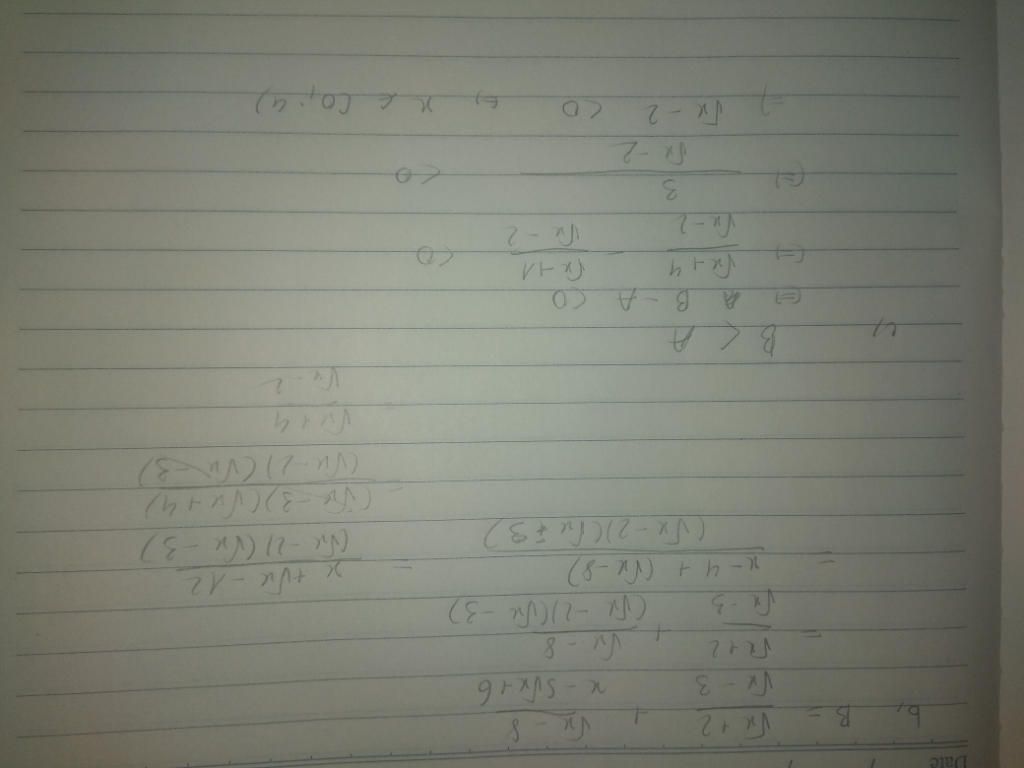 Date / /
b, B = (√x + 2)/(√x - 3) + (√x - 8)/(x - 5√x + 6)
= (√x + 2)/(√x - 3) + (√x - 8)/((√x - 2)(√x - 3))
= (x - 4 + (√x - 8))/((√x - 2)(√x - 3)) = (x + √x - 12)/((√x - 2)(√x - 3))
= ((√x - 3)(√x + 4))/((√x - 2)(√x - 3))
= (√x + 4)/(√x - 2)
B < A
(=) B - A < 0
(=) (√x + 4)/(√x - 2) - (√x + 1)/(√x - 2) < 0
(=) 3/(√x - 2) < 0
=) √x - 2 < 0 x ∈ [0; 4)